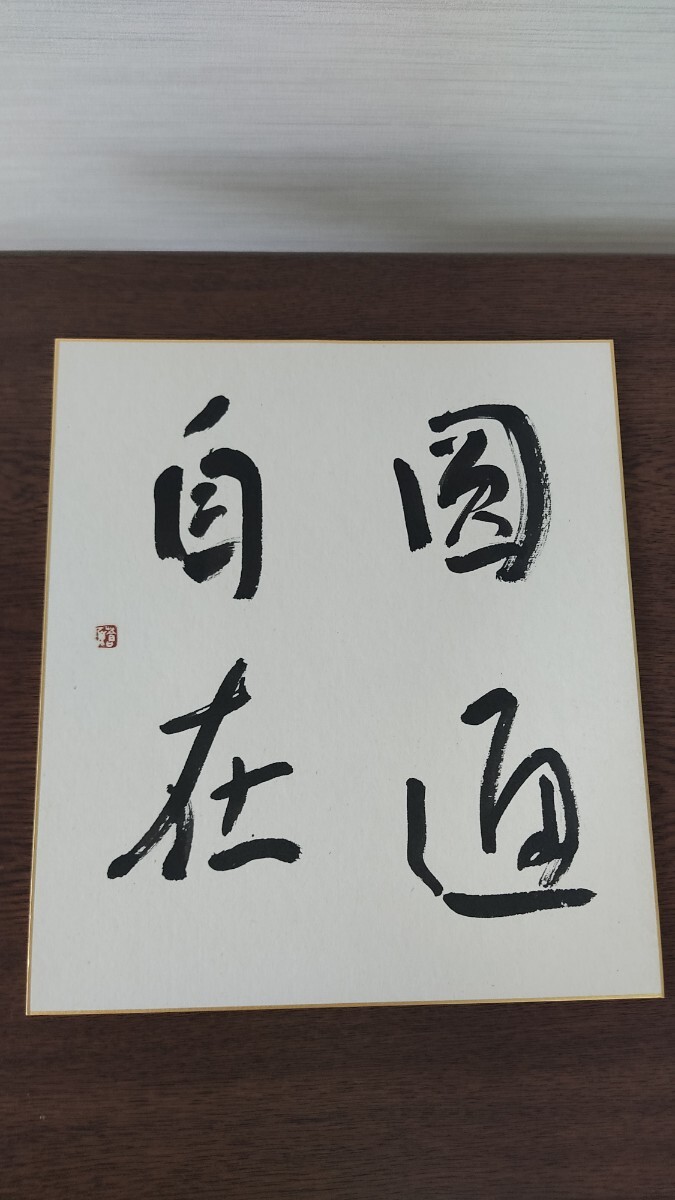 圓通
自在